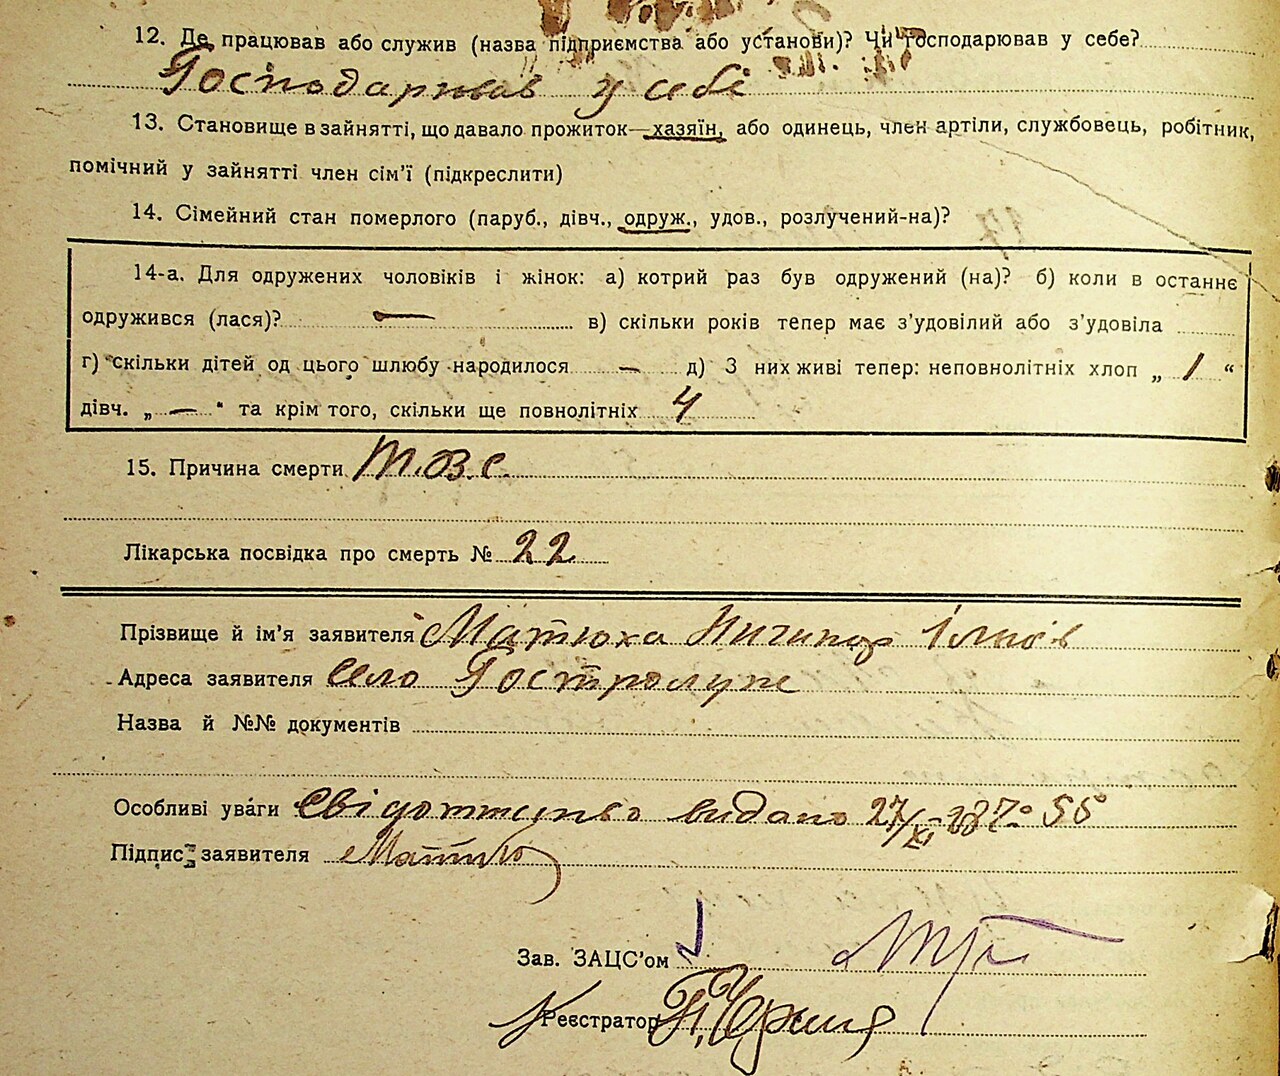 12. Де працював або служив (назва підприємства або установи)? Чи господарював у себе?
Господарював у себе
13. Становище в зайнятті, що давало прожиток—хазяїн, або одинець, член артіли, службовець, робітник,
помічний у зайнятті член сім’ї (підкреслити)
14. Сімейний стан померлого (паруб., дівч., одруж., удов., розлучений-на)?
14-а. Для одружених чоловіків і жінок: а) котрий раз був одружений (на)? б) коли в останнє
одружився (лася)? — в) скільки років тепер має з’удовілий або з’удовіла
г) скільки дітей од цього шлюбу народилося — д) З них живі тепер: неповнолітніх хлоп „ 1 “
дівч. „ — “ та крім того, скільки ще повнолітніх 4
15. Причина смерти Т.В.С.
Лікарська посвідка про смерть № 22
Прізвище й ім’я заявителя Матюха Ничипор Ілків
Адреса заявителя село Гостролуже
Назва й №№ документів
Особливі уваги Свідоцтво видано 27/XI
Підпис заявителя
Зав. ЗАЦС’ом
Реєстратор